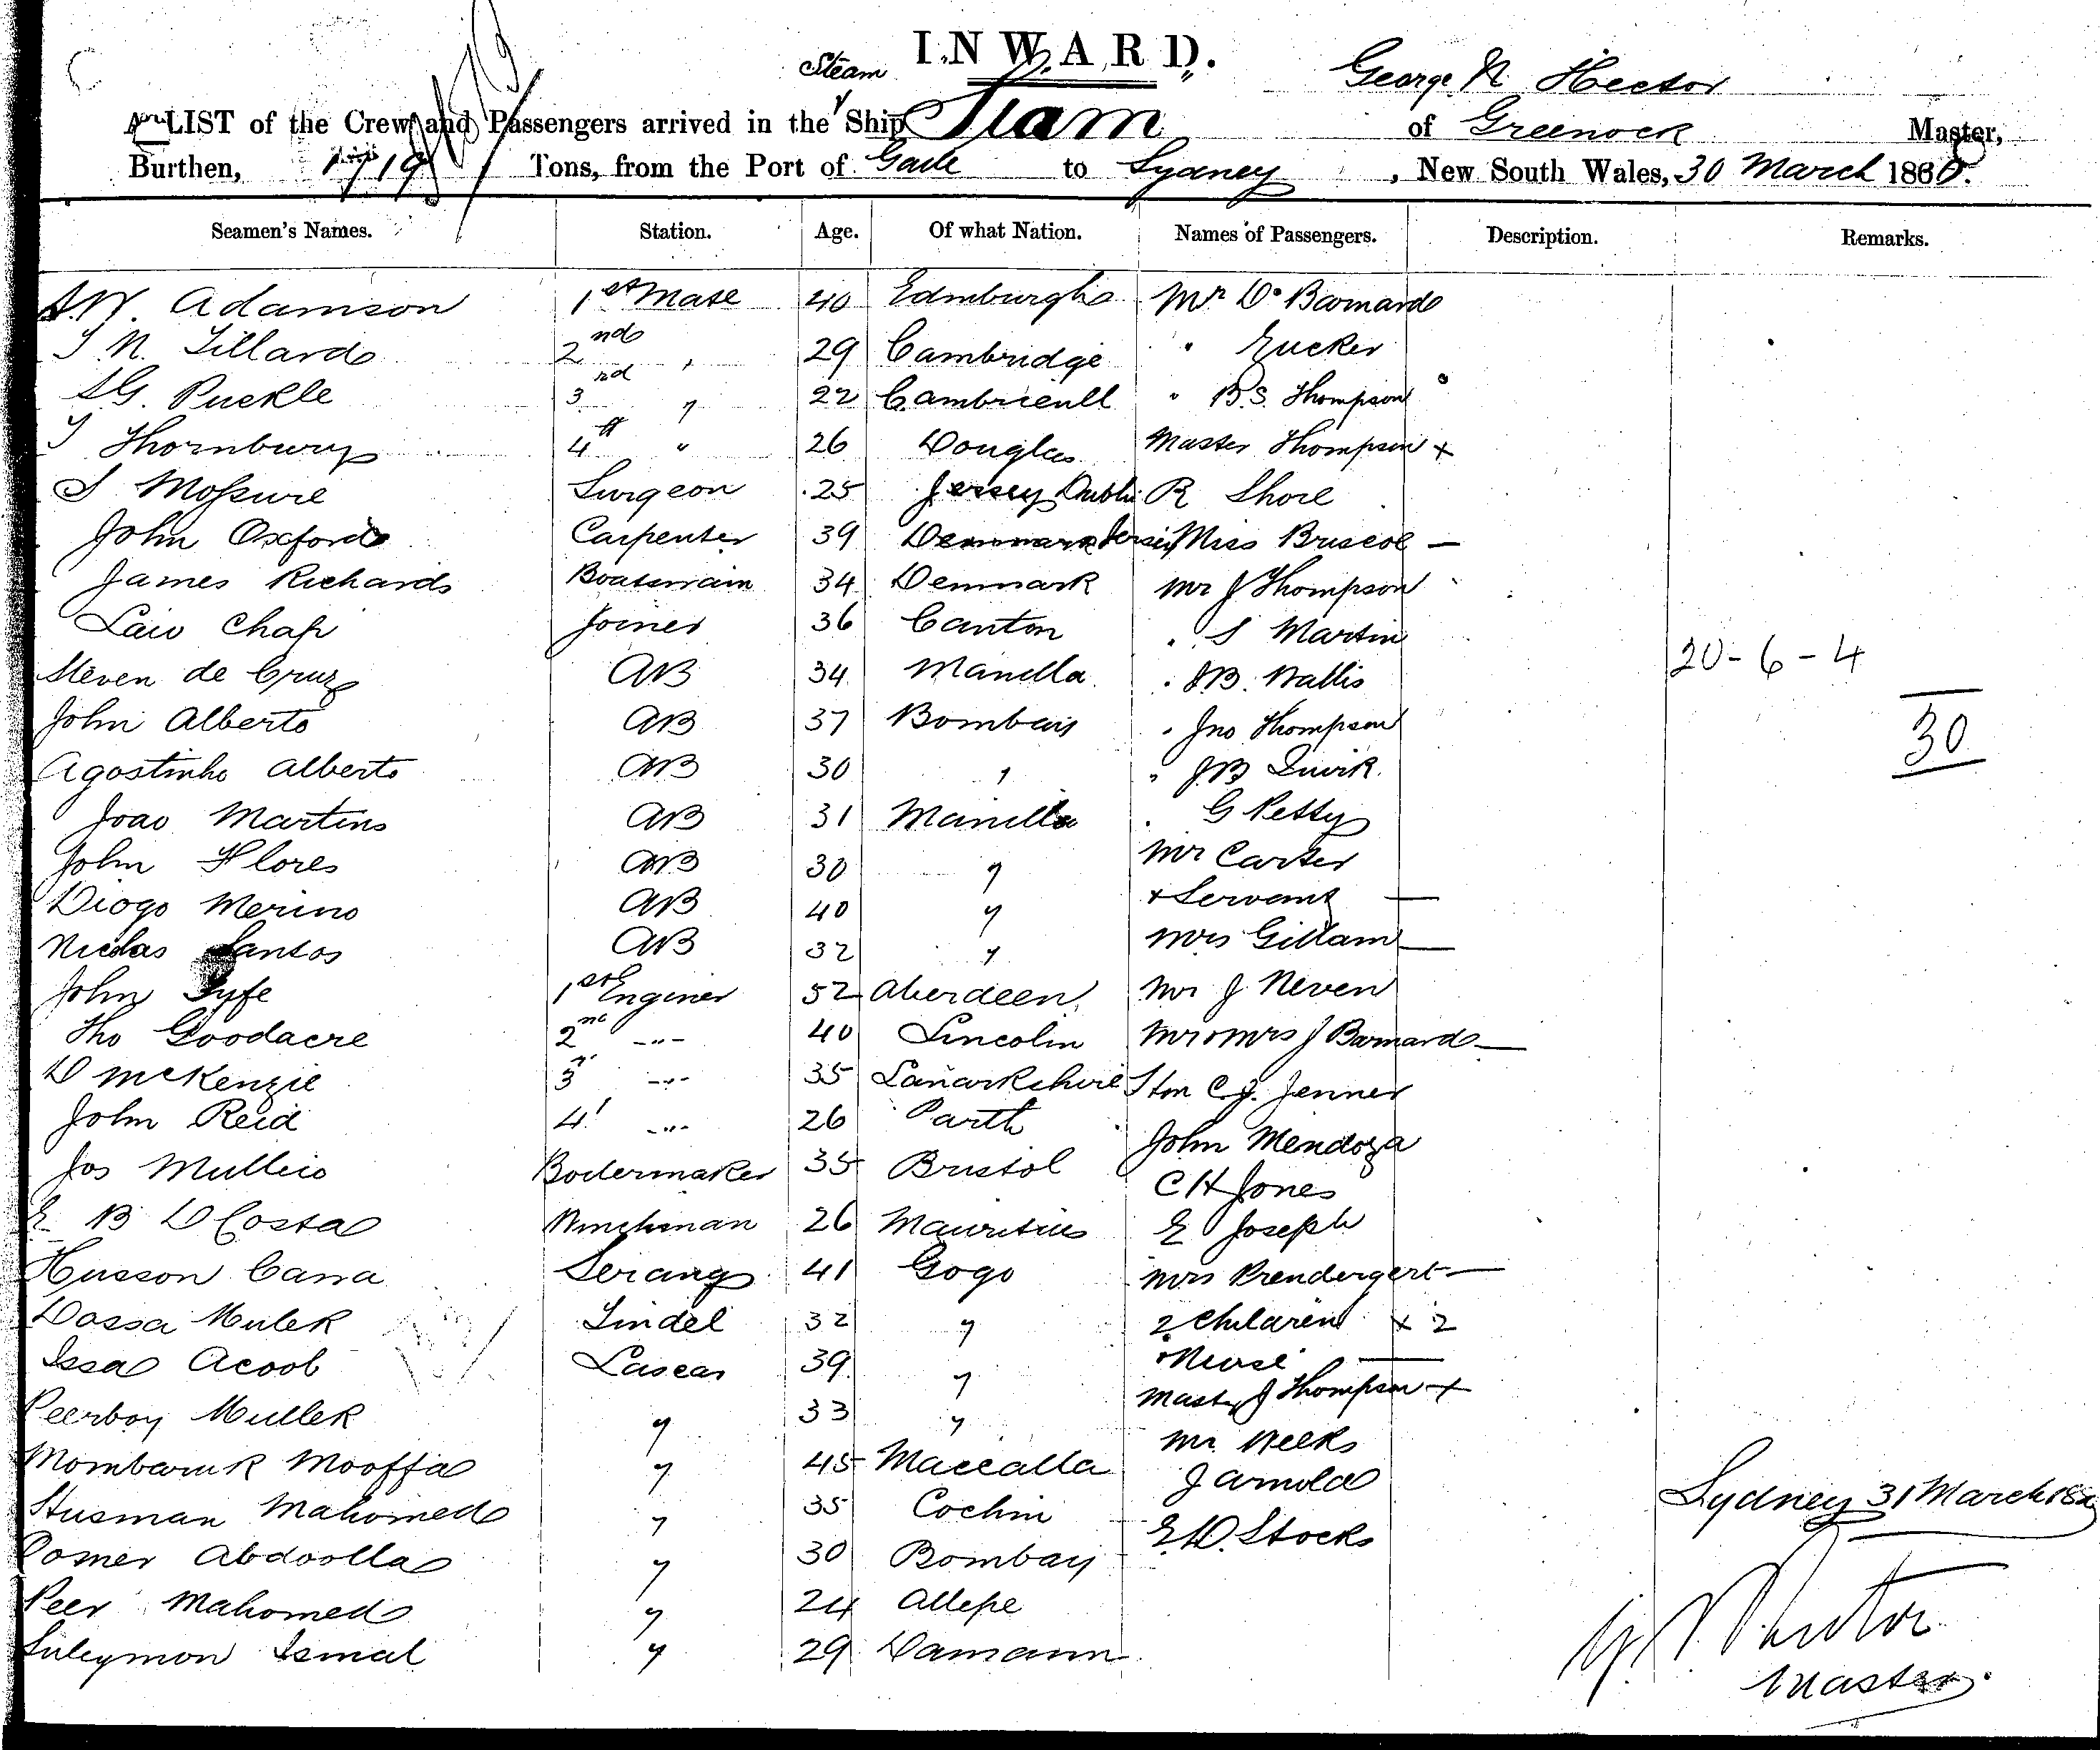 INWARD.
Steam George N Hector
A LIST of the Crew and Passengers arrived in the Ship Siam of Greenock Master,
Burthen, 1719 Tons, from the Port of Galle to Sydney, New South Wales, 30 March 1860.
Seamen's Names. Station. Age. Of what Nation. Names of Passengers. Description. Remarks.
A.W. Adamson 1st Mate 40 Edinburgh Mr D. Barnard
T N. Tillard 2nd " 29 Cambridge "
A G. Puckle 3rd " 22 " B.S. Thompson
T Thornbury 4th " 26 Douglas Master Thompson +
S Mossure Surgeon 25 Jersey Dublin R Shore
John Oxford Carpenter 39 Denmark Jersey Miss Briscoe —
James Richards Boatswain 34 Denmark Mr J Thompson
Law Chap Joiner 36 Canton " S Martin
Steven de Cruz AB 34 Manella " J.B. Wallis 20-6-4
John Alberto AB 37 Bombay " Jno Thompson 30
Agostinho Alberto AB 30 " " J.B
Joao Martins AB 31 Manilla " G Petty
John Flores AB 30 " Mr Carter
Diogo Merino AB 40 " + Servant —
Nicolas Santos AB 32 " Mrs Gillam —
John Fyfe 1st Enginer 52 Aberdeen Mr J Neven
Tho Goodacre 2nd -"- 40 Lincoln Mr & Mrs J Barnard —
D McKenzie 3 -"- 35 Lanarkshire Hon C.J. Jenner
John Reid 4 -"- 26 Parth John Mendoza
Jos Mullis Boilermaker 35 Bristol C H Jones
E B D Costa Winchman 26 Mauritius E Joseph
Husson Cana Serang 41 Gogo Mrs Prendergert —
Dossa Mulek Tindel 32 " 2 Children + 2
Issa Acoob Lascar 39 " + Nurse —
Peerboy Mullek " 33 " Master J Thompson +
Mombaruk Mooffa " 45 Maccalla Mr. Weeks
Husman Mahomed " 35 Cochin J Arnold Sydney 31 March
Oomer Abdoolla " 30 Bombay E.D. Stocks
Peer Mahomed " 24 Allepe
Suleymon Ismal " 29 Damann
Master